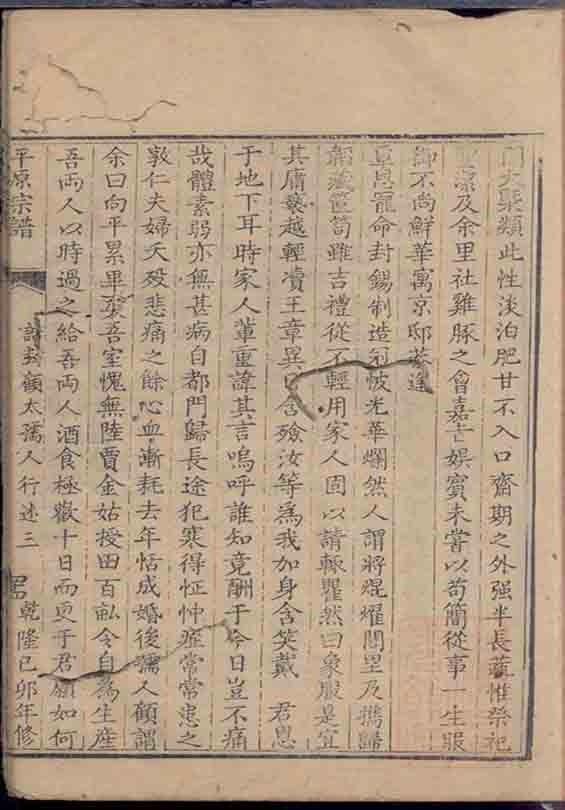 門大聚類此性淡泊肥甘不入口齋期之外强半長蔬惟祭祀
潔及余里社雞豚之會嘉吉娛賓未嘗以苟簡從事一生服
御不尚鮮華寓京邸茲逢
覃恩寵命封錫制造冠帔光華爛然人謂將焜耀閭里及攜歸
藏篋笥雖吉禮從不輕用家人固以請輒瞿然曰象服是宜
其庸褻越輕瀆王章異日含殮汝等為我加身含笑戴 君恩
于地下耳時家人輩重諱其言嗚呼誰知竟酬于今日豈不痛
哉體素弱亦無甚病自都門歸長途犯寒得怔忡症常常患之
敦仁夫婦夭歿悲痛之餘心血漸耗去年恬成婚後孺人顧謂
余曰向平累畢矣吾室愧無陸賈金姑授田百畆令自為生產
吾兩人以時過之給吾兩人酒食極歡十日而更于君願如何
平原宗譜 誥封顧太孺人行述三 乾隆己卯年修